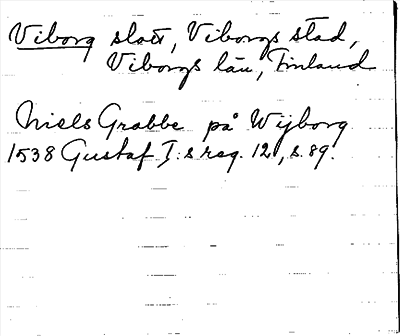 Viborg slott, Viborgs stad,
Viborgs län, Finland
Niels Grabbe på Wijborg
1538 Gustaf I:s reg. 12, s. 89.